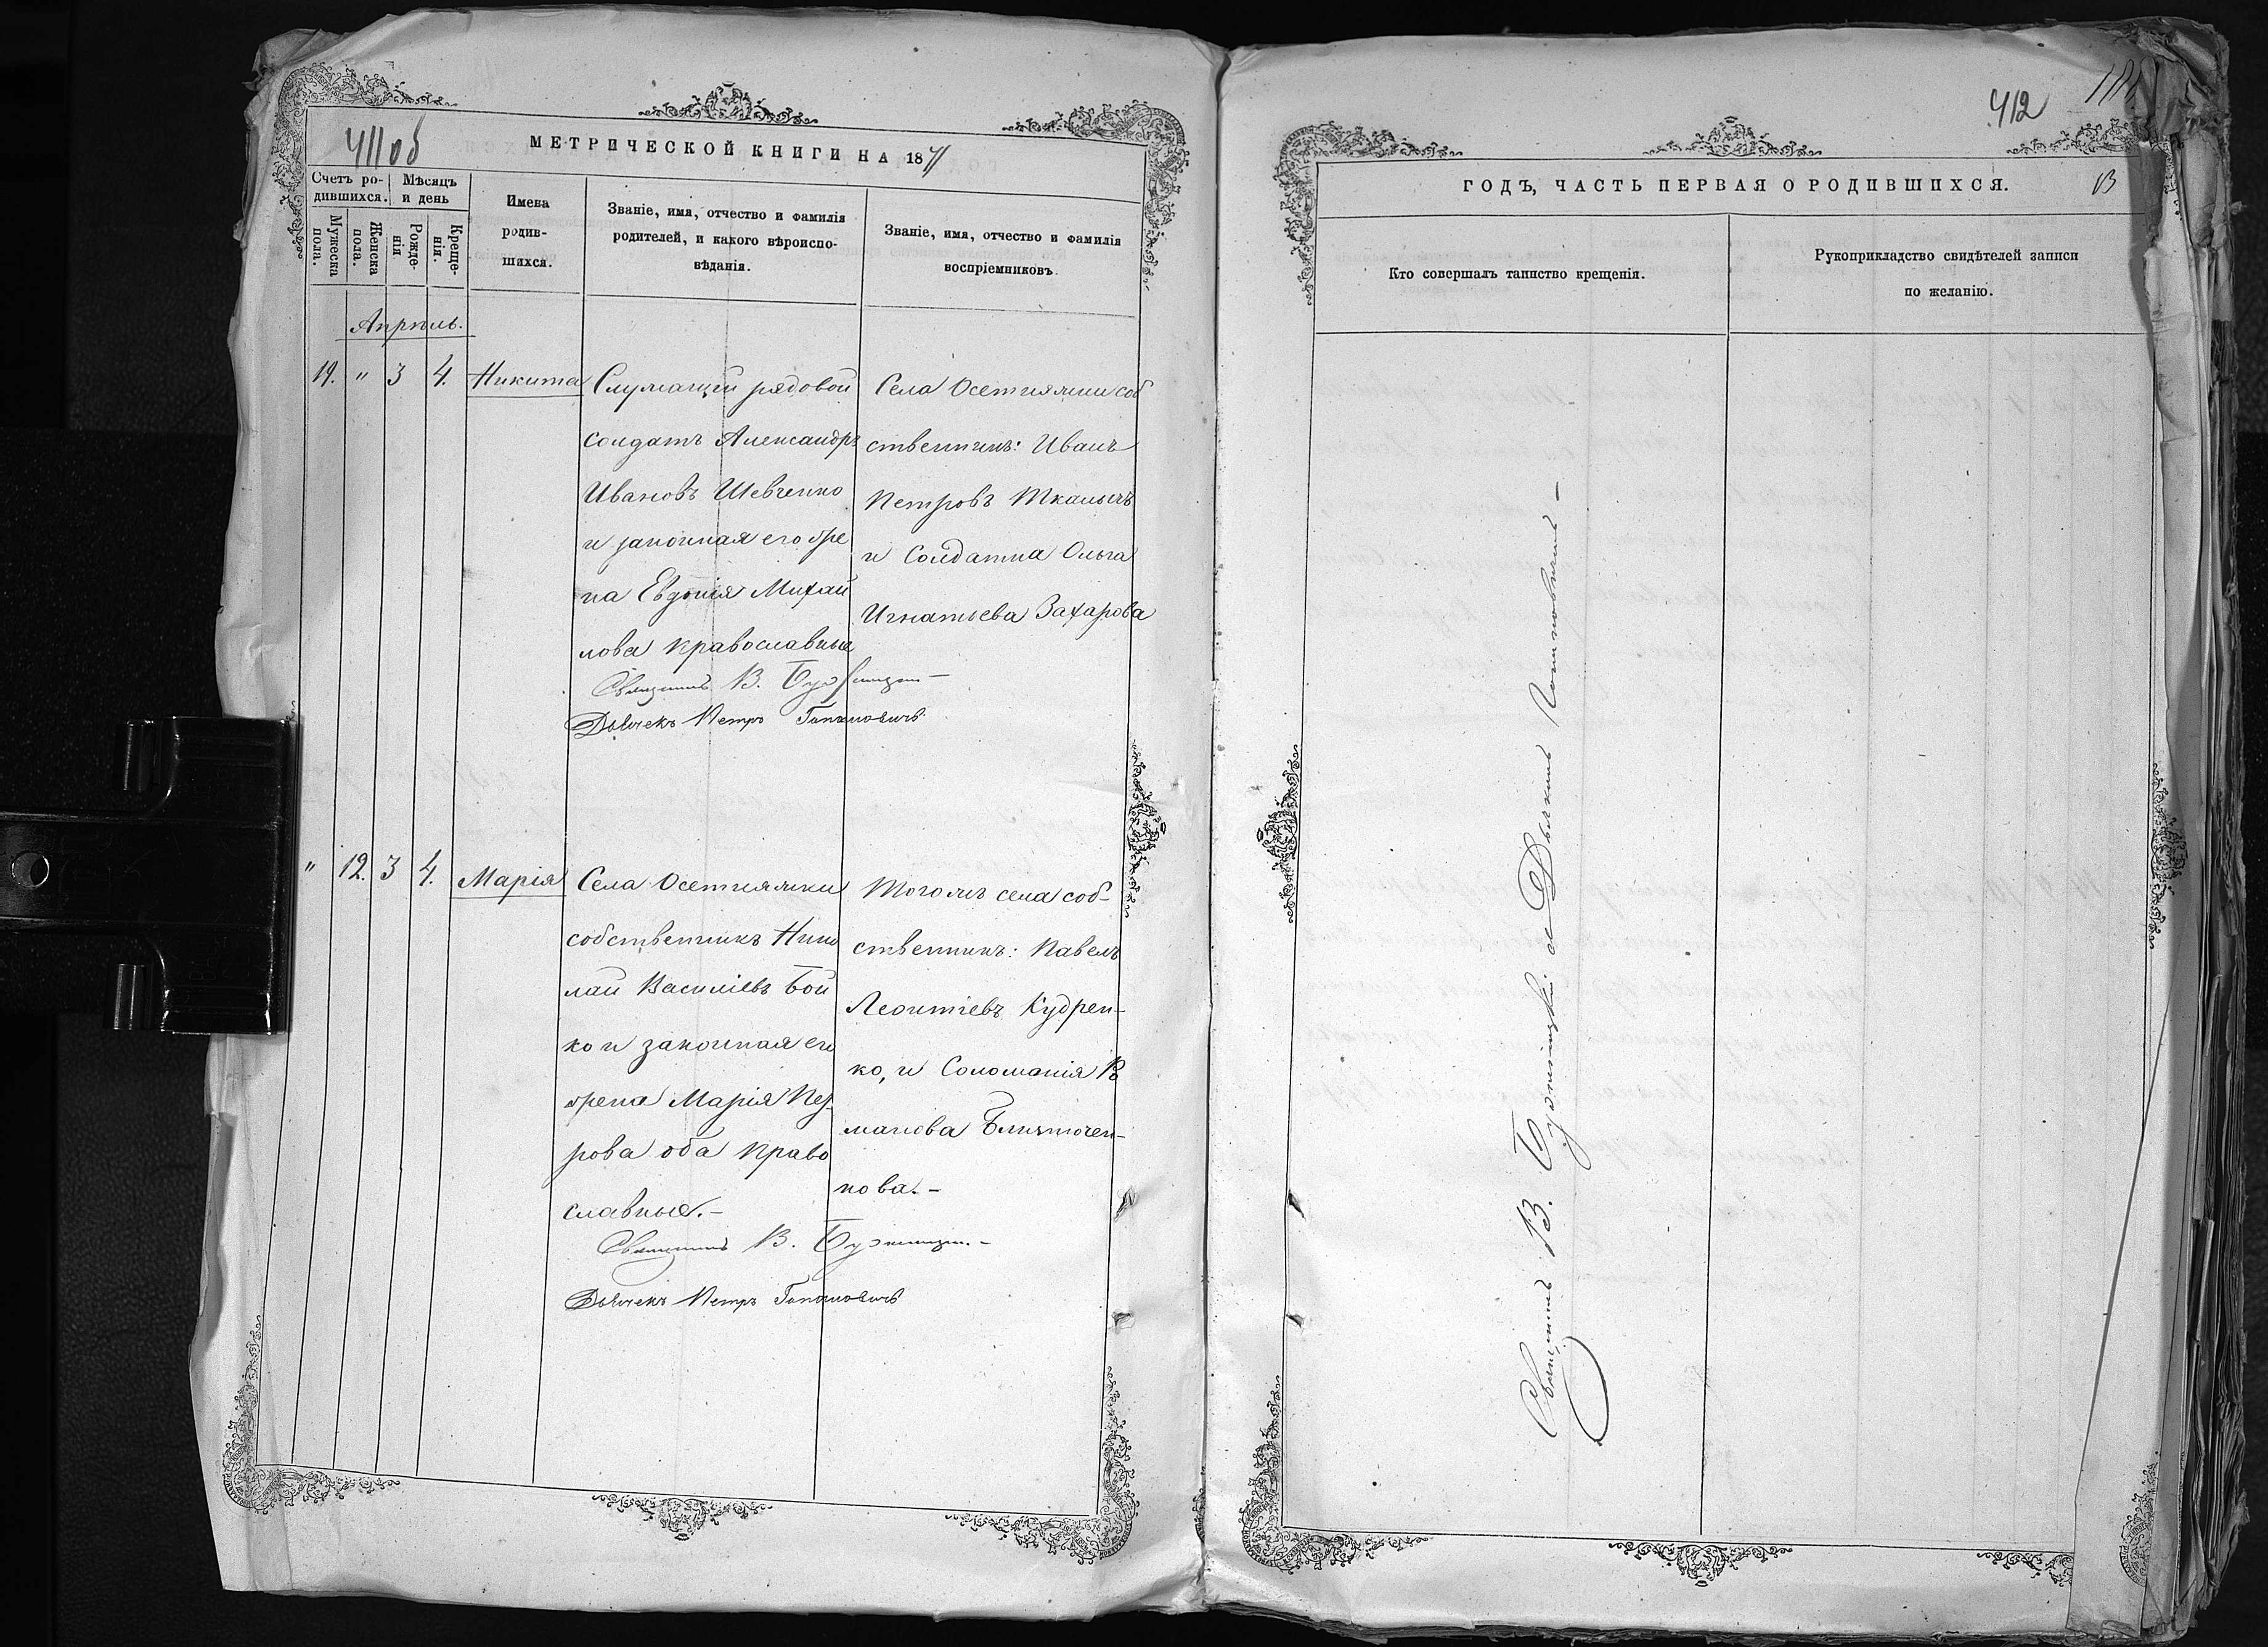 411 об
МЕТРИЧЕСКОЙ КНИГИ НА 1871
Счетъ ро-
дившихся.
Мѣсяцъ
и день
Мужеска
пола.
Женска
пола.
Рожде-
нія
Креще-
нія.
Имена
родив-
шихся.
Званіе, имя, отчество и фамилія
родителей, и какого вѣроиспо-
вѣданія.
Званіе, имя, отчество и фамилія
воспріемниковъ
Апрѣль.
19. " 3 4. Никита
Служащій рядовой
солдатъ Александръ
Ивановъ Шевченко
и законная его бре
на Евдокія Михай
лова православные
Священникъ В.
Дьячекъ Петръ
Села Осетняжки соб
ственникъ: Иванъ
Петровъ Ткачычъ
и Солдатка Ольга
Игнатьева Захарова
" 12. 3 4. Марія
Села Осетняжки
собственникъ Нико
лай Василіевъ Бой
ко и законная его
брена Марія Пет
рова оба право
славные.-
Священникъ В.
Дьячекъ Петръ
Тогожъ села соб-
ственникъ: Павелъ
Леонтіевъ Кудрен-
ко, и Соломанія Ро
манова
кова.-
412
ГОДЪ, ЧАСТЬ ПЕРВАЯ О РОДИВШИХСЯ.
13
Кто совершалъ таинство крещенія.
Рукоприкладство свидѣтелей записи
по желанію.
Священникъ В. съ Дьячкомъ